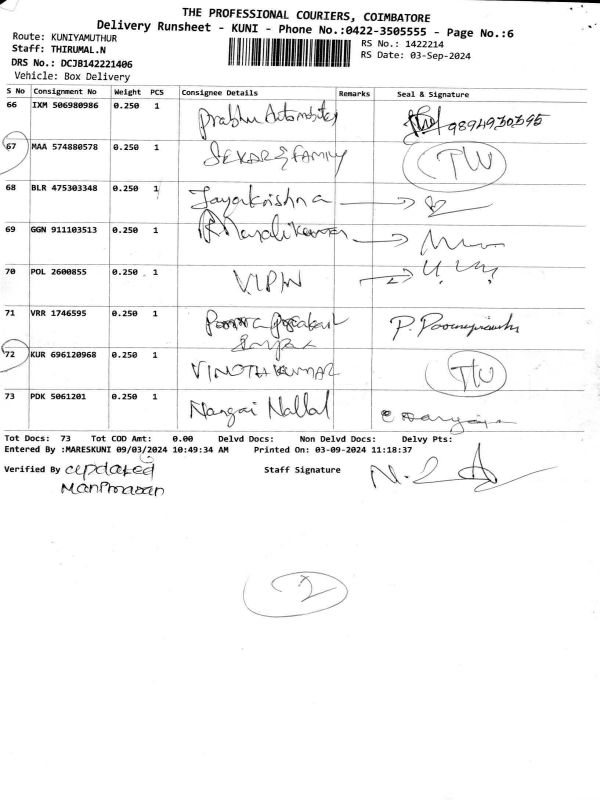 THE PROFESSIONAL COURIERS, COIMBATORE
Delivery Runsheet - KUNI - Phone No.:0422-3505555 - Page No.:6
Route: KUNIYAMUTHUR
RS No.: 1422214
Staff: THIRUMAL.N
RS Date: 03-Sep-2024
DRS No.: DCJB142221406
Vehicle: Box Delivery
S No Consignment No Weight PCS Consignee Details Remarks Seal & Signature
66 IXM 506980986 0.250 1 Prabhu Automobiles
67 MAA 574880578 0.250 1 SEKAR & FAMILY TW
68 BLR 475303348 0.250 1 Jayakrishna
69 GGN 911103513 0.250 1
70 POL 2600855 0.250 1 VIPIN
71 VRR 1746595 0.250 1
72 KUR 696120968 0.250 1 VINOTHKUMAR TW
73 PDK 5061201 0.250 1 Nangai Nallal
Tot Docs: 73 Tot COD Amt: 0.00 Delvd Docs: Non Delvd Docs: Delvy Pts:
Entered By :MARESKUNI 09/03/2024 10:49:34 AM Printed On: 03-09-2024 11:18:37
Verified By updated Staff Signature
2